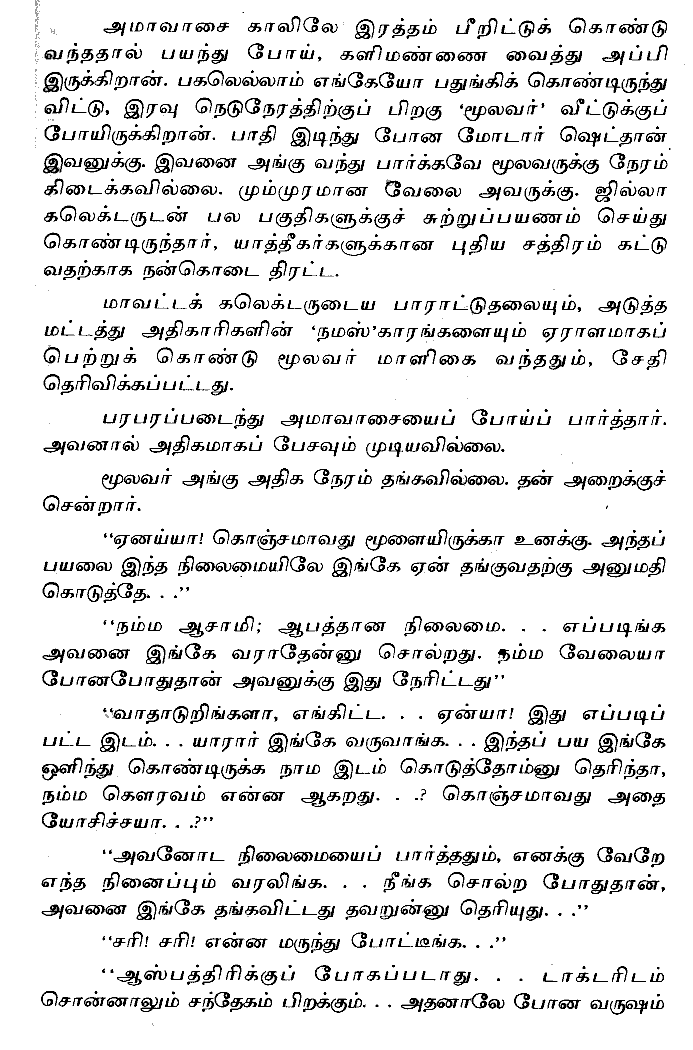 அமாவாசை காலிலே இரத்தம் பீறிட்டுக் கொண்டு
வந்ததால் பயந்து போய், களிமண்ணை வைத்து அப்பி
இருக்கிறான். பகலெல்லாம் எங்கேயோ பதுங்கிக் கொண்டிருந்து
விட்டு, இரவு நெடுநேரத்திற்குப் பிறகு ‘மூலவர்’ வீட்டுக்குப்
போயிருக்கிறான். பாதி இடிந்து போன மோடார் ஷெட்தான்
இவனுக்கு. இவனை அங்கு வந்து பார்க்கவே மூலவருக்கு நேரம்
கிடைக்கவில்லை. மும்முரமான வேலை அவருக்கு. ஜில்லா
கலெக்டருடன் பல பகுதிகளுக்குச் சுற்றுப்பயணம் செய்து
கொண்டிருந்தார், யாத்தீகர்களுக்கான புதிய சத்திரம் கட்டு
வதற்காக நன்கொடை திரட்ட.
மாவட்டக் கலெக்டருடைய பாராட்டுதலையும், அடுத்த
மட்டத்து அதிகாரிகளின் ‘நமஸ்’காரங்களையும் ஏராளமாகப்
பெற்றுக் கொண்டு மூலவர் மாளிகை வந்ததும், சேதி
தெரிவிக்கப்பட்டது.
பரபரப்படைந்து அமாவாசையைப் போய்ப் பார்த்தார்.
அவனால் அதிகமாகப் பேசவும் முடியவில்லை.
மூலவர் அங்கு அதிக நேரம் தங்கவில்லை. தன் அறைக்குச்
சென்றார்.
‘‘ஏனய்யா! கொஞ்சமாவது மூளையிருக்கா உனக்கு. அந்தப்
பயலை இந்த நிலைமையிலே இங்கே ஏன் தங்குவதற்கு அனுமதி
கொடுத்தே. . .’’
‘‘நம்ம ஆசாமி; ஆபத்தான நிலைமை. . . எப்படிங்க
அவனை இங்கே வராதேன்னு சொல்றது. நம்ம வேலையா
போனபோதுதான் அவனுக்கு இது நேரிட்டது’’
‘‘வாதாடுறிங்களா, எங்கிட்ட. . . ஏன்யா! இது எப்படிப்
பட்ட இடம். . . யாரார் இங்கே வருவாங்க. . . இந்தப் பய இங்கே
ஒளிந்து கொண்டிருக்க நாம இடம் கொடுத்தோம்னு தெரிந்தா,
நம்ம கௌரவம் என்ன ஆகறது. . .? கொஞ்சமாவது அதை
யோசிச்சயா. . .?’’
‘‘அவனோட நிலைமையைப் பார்த்ததும், எனக்கு வேறே
எந்த நினைப்பும் வரலிங்க. . . நீங்க சொல்ற போதுதான்,
அவனை இங்கே தங்கவிட்டது தவறுன்னு தெரியுது. . .’’
‘‘சரி! சரி! என்ன மருந்து போட்டீங்க. . .’’
‘‘ஆஸ்பத்திரிக்குப் போகப்படாது. . . டாக்டரிடம்
சொன்னாலும் சந்தேகம் பிறக்கும். . . அதனாலே போன வருஷம்